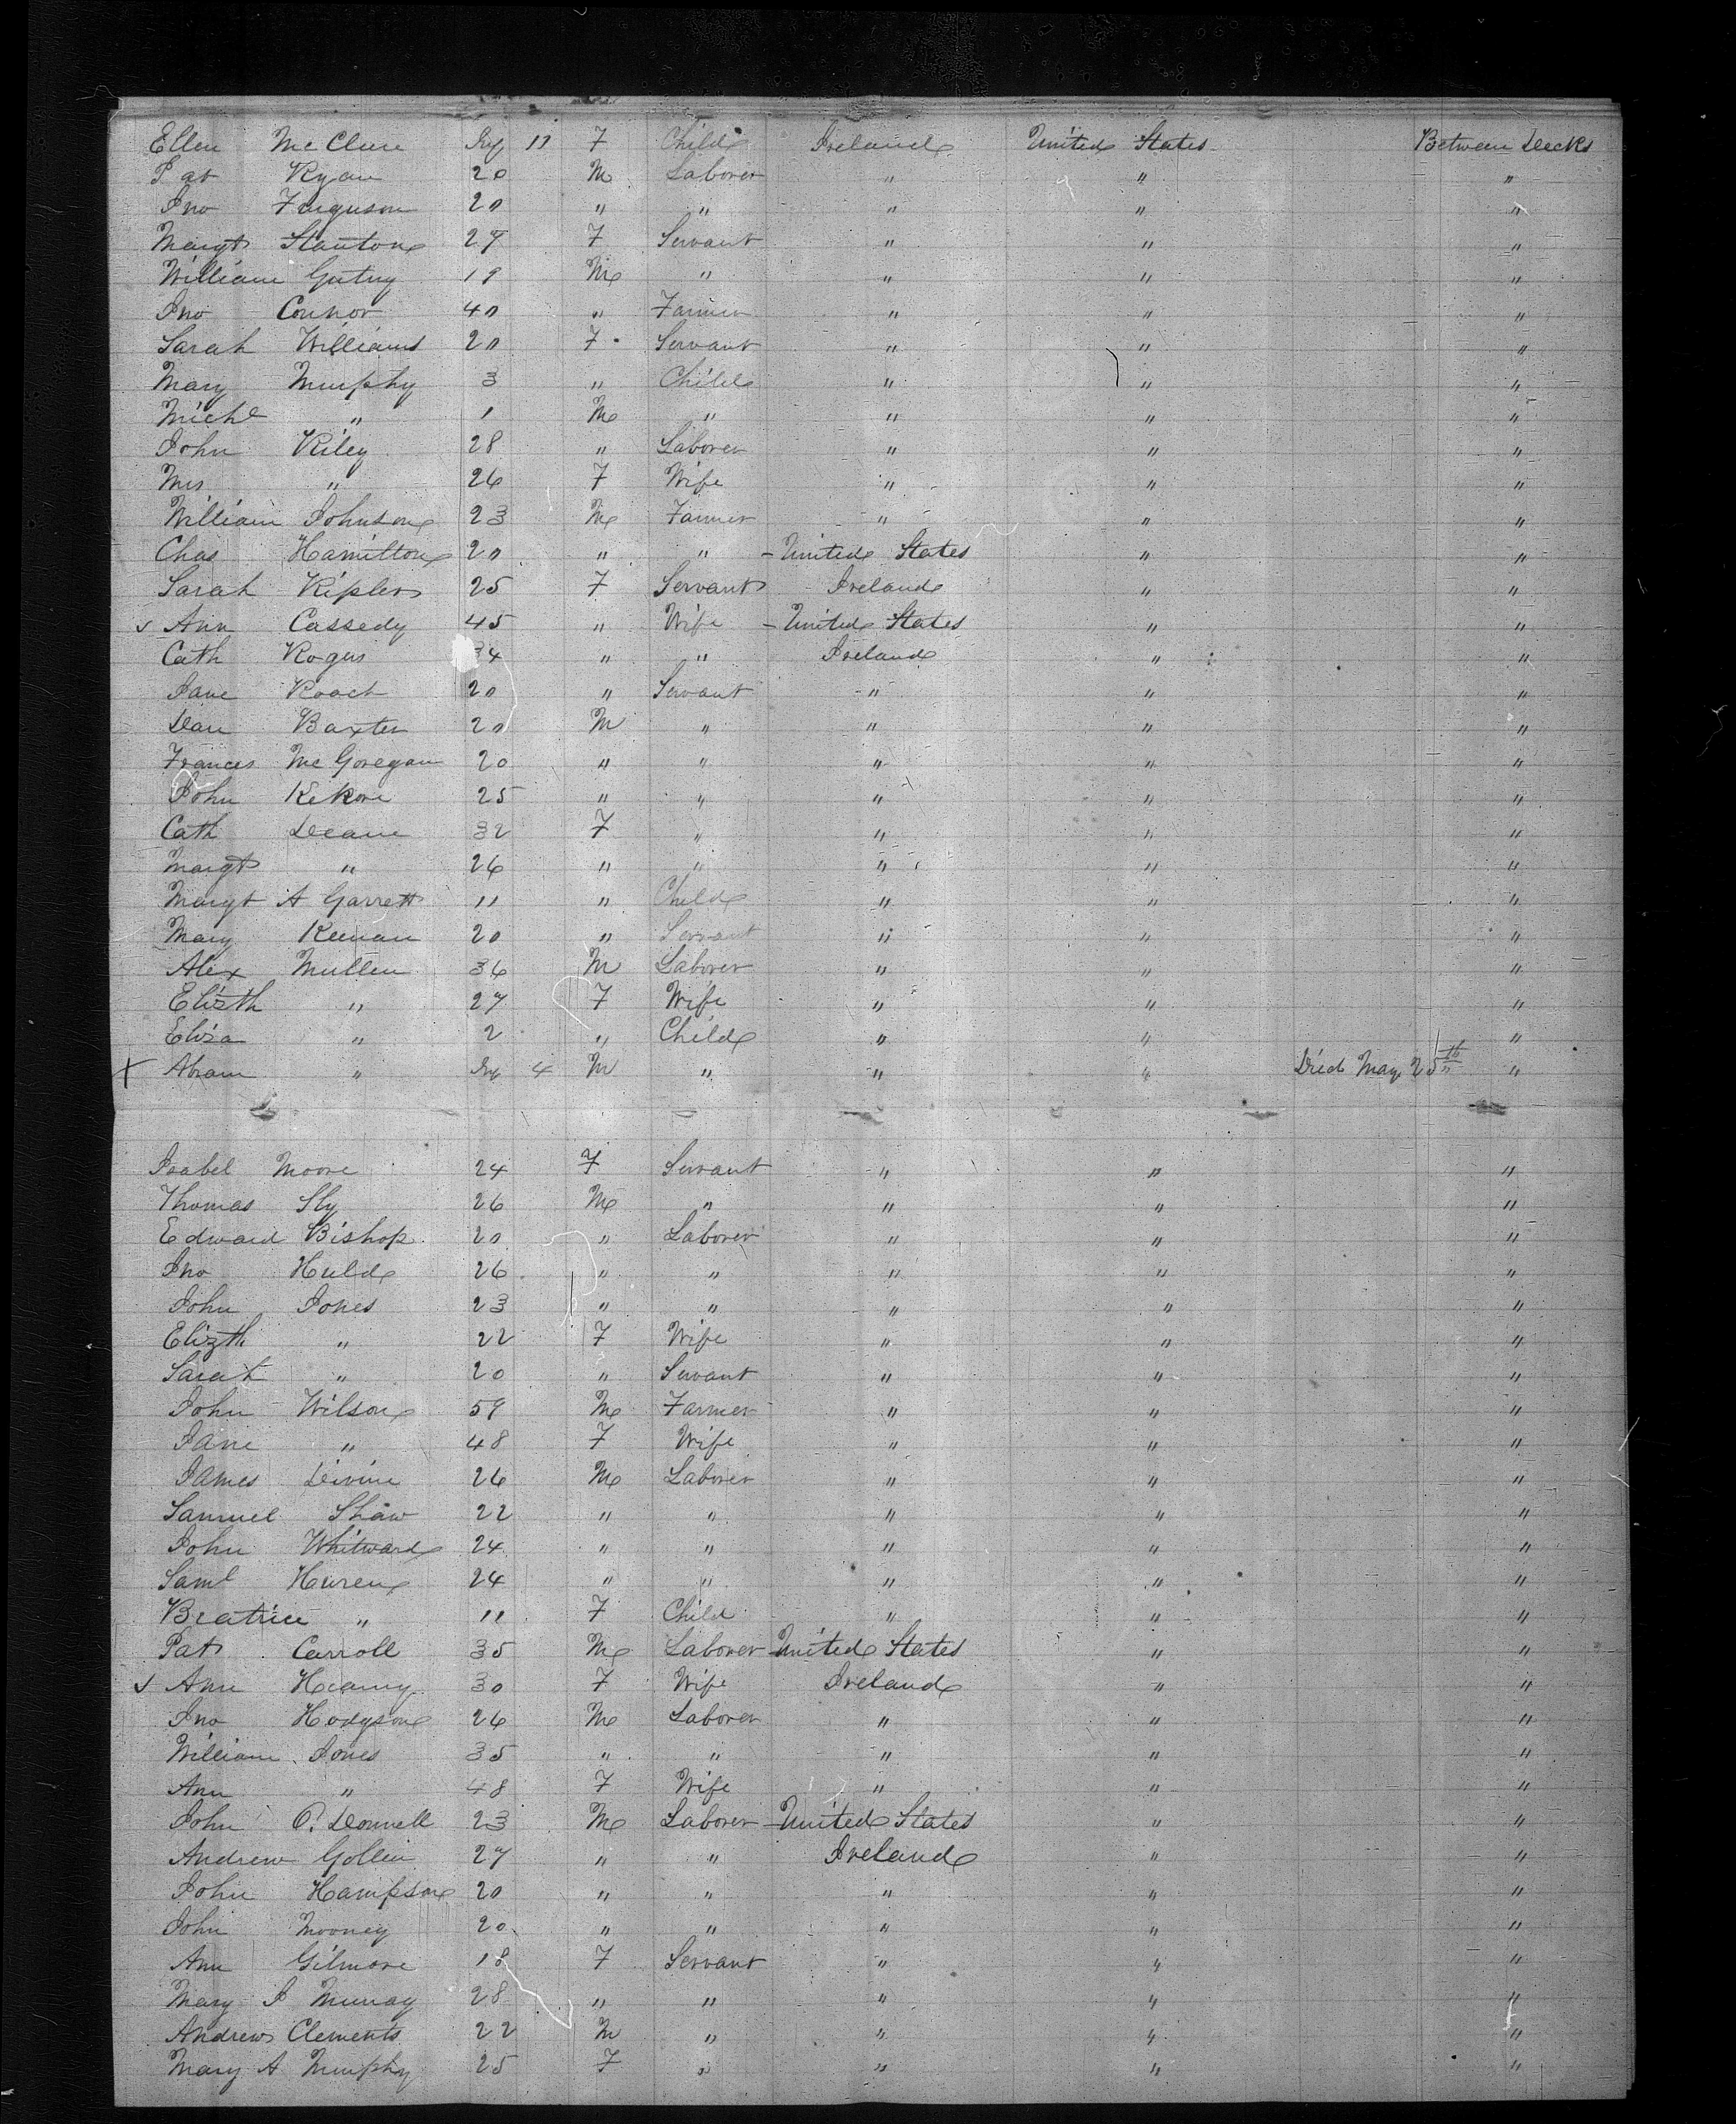 Ellen McClure Inf 11 F Child Ireland United States Between Decks
Pat Ryan 20 M Laborer " " "
Jno Ferguson 20 " " " " "
Margt Stanton 27 F Servant " " "
William Gutry 19 M " " " "
Jno Connor 40 " Farmer " " "
Sarah Williams 20 F Servant " " "
Mary Murphy 3 " Child " " "
Michl " 1 M " " " "
John Riley 28 " Laborer " " "
Mrs " 26 F Wife " " "
William Johnson 23 M Farmer " " "
Chas Hamilton 20 " " - United States " "
Sarah Kipler 25 F Servant Ireland " "
✓ Ann Cassedy 45 " Wife - United States " "
Cath Rogers 34 " " Ireland " "
Jane Roach 20 " Servant " " "
Dan Baxter 20 M " " " "
Frances McGoregan 20 " " " " "
John Kekore 25 " " " " "
Cath Deane 32 F " " " "
Margt " 26 " " " " "
Margt A Garrett 11 " Child " " "
Mary Keenan 20 " Servant " " "
Alex Mullen 36 M Laborer " " "
Elizth " 27 F Wife " " "
Eliza " 2 " Child " " "
X Abram " Inf 4 M " " " Died May 25th "
Isabel Moore 24 F Servant " " "
Thomas Sly 26 M " " " "
Edward Bishop 20 " Laborer " " "
Jno Huld 26 " " " " "
John Jones 23 " " " " "
Elizth " 22 F Wife " " "
Sarah " 20 " Servant " " "
John Wilson 59 M Farmer " " "
Jane " 48 F Wife " " "
James Divine 26 M Laborer " " "
Samuel Shaw 22 " " " " "
John Whitward 24 " " " " "
Saml Huren 24 " " " " "
Beatrice " 11 F Child " " "
Pat Carroll 35 M Laborer - United States " "
✓ Ann Hearny 30 F Wife Ireland " "
Jno Hodgson 26 M Laborer " " "
William Jones 35 " " " " "
Ann " 48 F Wife " " "
John O'Donnell 23 M Laborer - United States " "
Andrew Gollen 27 " " Ireland " "
John Hampson 20 " " " " "
John Mooney 20 " " " " "
Ann Gilmore 18 F Servant " " "
Mary J Murray 28 " " " " "
Andrew Clements 22 M " " " "
Mary A Murphy 25 F " " " "